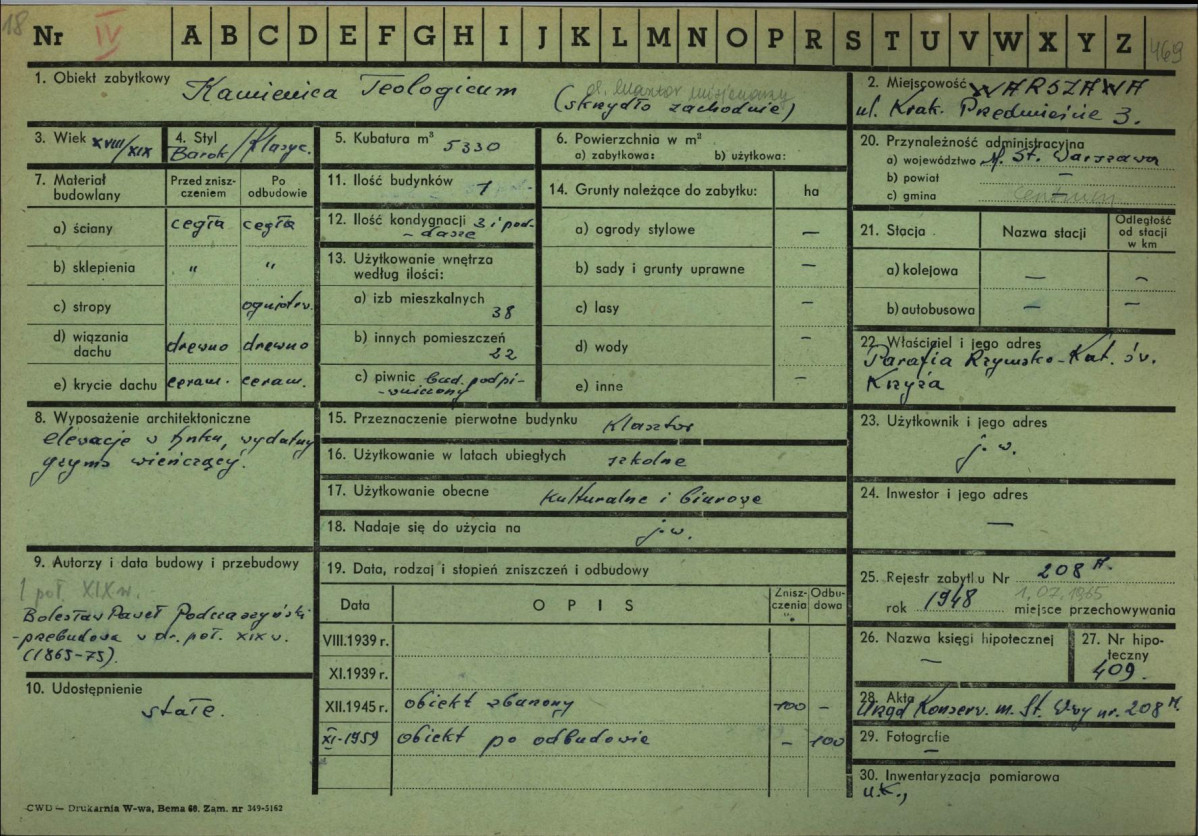 18 Nr IV A B C D E F G H I J K L M N O P R S T U V W X Y Z 469
1. Obiekt zabytkowy Kamienica Teologicum
d. klasztor misjonarzy
(skrzydło zachodnie)
2. Miejscowość WARSZAWA
ul. Krak. Przedmieście 3.
3. Wiek XVIII/XIX
4. Styl Barok/Klasyc.
5. Kubatura m³ 5330
6. Powierzchnia w m²
a) zabytkowa: b) użytkowa:
20. Przynależność administracyjna
a) województwo M. St. Warszawa
b) powiat —
c) gmina — centrum
7. Materiał budowlany
Przed zniszczeniem
Po odbudowie
a) ściany cegła cegła
b) sklepienia " "
c) stropy ogniotrw.
d) wiązania dachu drewno drewno
e) krycie dachu ceram. ceram.
11. Ilość budynków 1
12. Ilość kondygnacji 3 i pod-
-dasze
13. Użytkowanie wnętrza
według ilości:
a) izb mieszkalnych
38
b) innych pomieszczeń
22
c) piwnic bud. podpi-
-wniczony
14. Grunty należące do zabytku: ha
a) ogrody stylowe —
b) sady i grunty uprawne —
c) lasy —
d) wody —
e) inne —
21. Stacja Nazwa stacji Odległość od stacji w km
a) kolejowa — —
b) autobusowa — —
22. Właściciel i jego adres
Parafia Rzymsko-Kat. św.
Krzyża
8. Wyposażenie architektoniczne
elewacje w tynku, wydatny
gzyms wieńczący.
15. Przeznaczenie pierwotne budynku klasztor
16. Użytkowanie w latach ubiegłych szkolne
17. Użytkowanie obecne kulturalne i biurowe
18. Nadaje się do użycia na j.w.
23. Użytkownik i jego adres
j. w.
24. Inwestor i jego adres
—
9. Autorzy i data budowy i przebudowy
1 poł. XIX w.
Bolesław Paweł Podczaszyński
-przebudowa w dr. poł. XIX w.
(1865-75).
10. Udostępnienie
stałe.
19. Data, rodzaj i stopień zniszczeń i odbudowy
Data O P I S Zniszczenia % Odbudowa
VIII.1939 r.
XI.1939 r.
XII.1945 r. obiekt zburzony 100 —
XI-1959 obiekt po odbudowie — 100
25. Rejestr zabytku Nr 208
1.07.1965
rok 1948 miejsce przechowywania
26. Nazwa księgi hipotecznej
—
27. Nr hipoteczny
409.
28. Akta
Urząd Konserw. m. St. Wwy nr. 208
29. Fotografie
—
30. Inwentaryzacja pomiarowa
u.K.,
CWD — Drukarnia W-wa, Bema 60. Zam. nr 349-5162